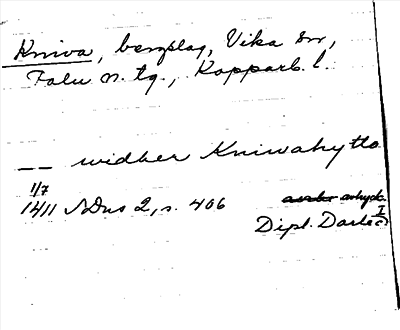 Kniva, bergslag, Vika sn,
Falu n. tg., Kopparb. l.
— — widher Kniwahytto
1/7
1411 SDns 2, s. 406
avhyds.
Dipl. Darlec. I